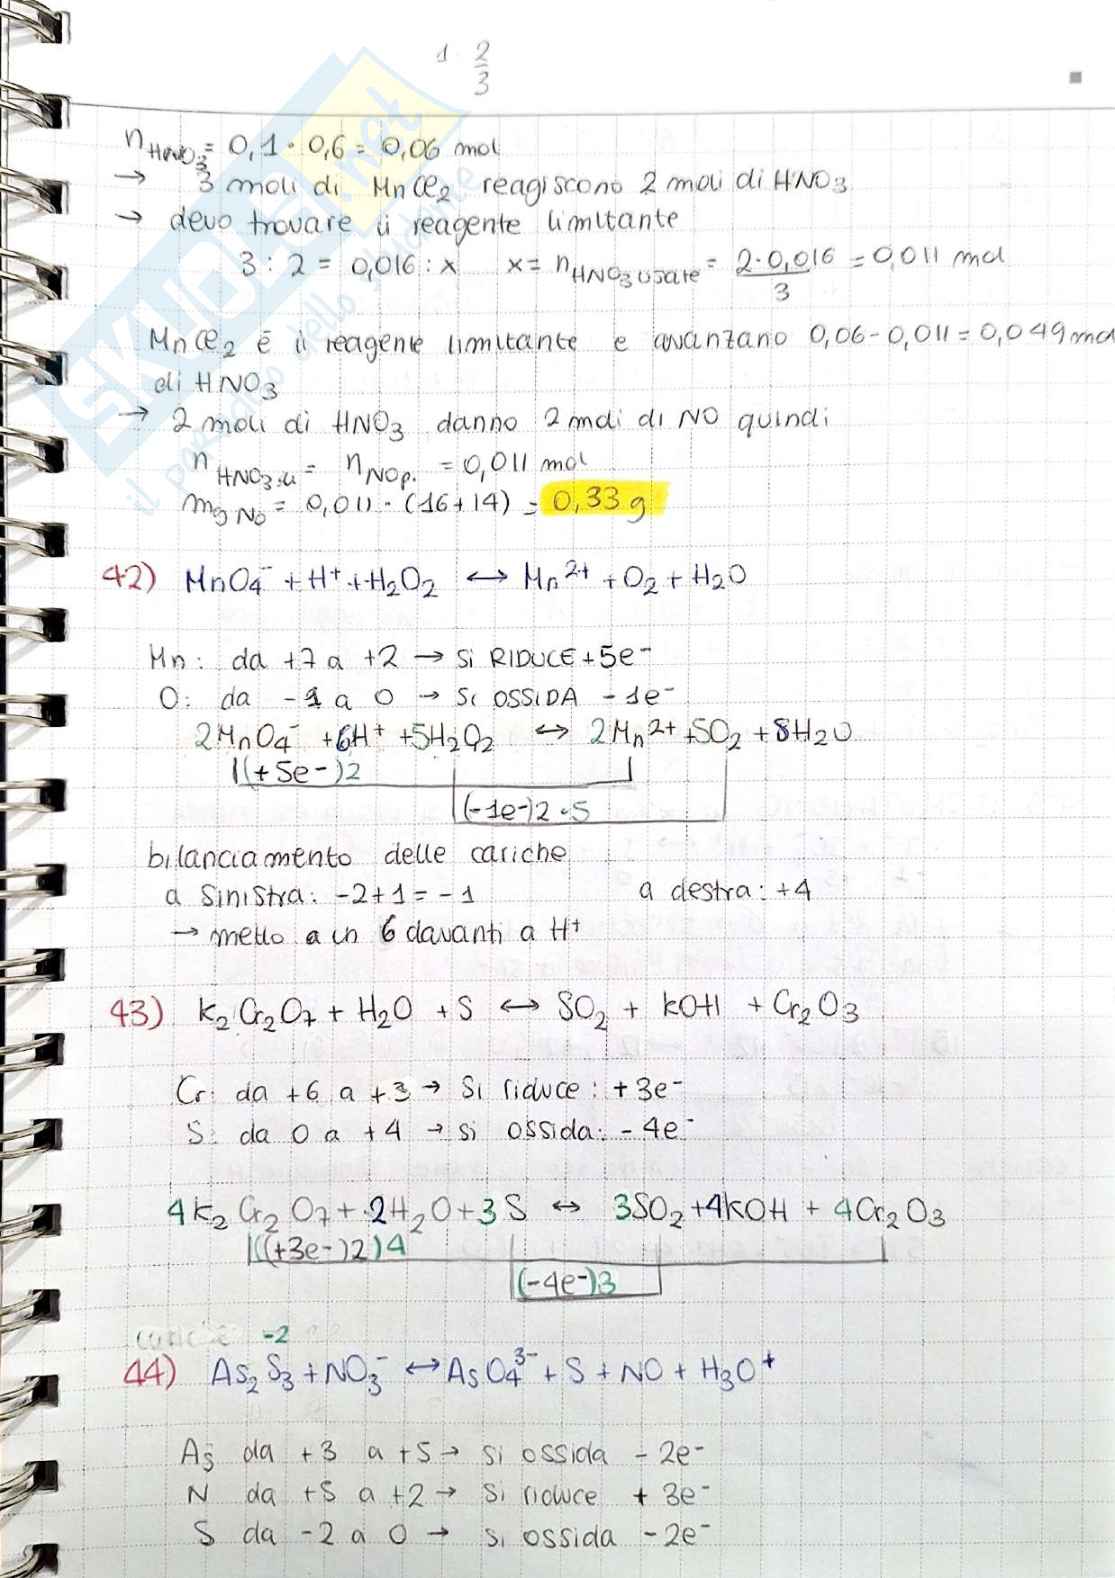 1 2/3
nHNO3 = 0,1 · 0,6 = 0,06 mol
→ 3 moli di MnCl2 reagiscono 2 moli di HNO3
→ devo trovare il reagente limitante
3 : 2 = 0,016 : x x = nHNO3 usate = 2·0,016/3 = 0,011 mol
MnCl2 è il reagente limitante e avanzano 0,06 - 0,011 = 0,049 mol
di HNO3
→ 2 moli di HNO3 danno 2 moli di NO quindi
nHNO3.u = nNOp. = 0,011 mol
mgNO = 0,011 · (16+14) = 0,33 g
42) MnO4⁻ + H⁺ + H2O2 ↔ Mn²⁺ + O2 + H2O
Mn: da +7 a +2 → si RIDUCE +5e⁻
O: da -1 a 0 → si OSSIDA -1e⁻
2MnO4⁻ +6H⁺ +5H2O2 ↔ 2Mn²⁺ +5O2 +8H2O
(+5e-)2
(-1e-)2·5
bilanciamento delle cariche
a sinistra: -2+1 = -1 a destra: +4
→ metto un 6 davanti a H⁺
43) K2Cr2O7 + H2O + S ↔ SO2 + KOH + Cr2O3
Cr: da +6 a +3 → Si riduce: +3e⁻
S: da 0 a +4 → si ossida: -4e⁻
4K2Cr2O7 + ·2H2O + 3S ↔ 3SO2 + 4KOH + 4Cr2O3
((+3e-)2)4
(-4e-)3
-2
44) As2S3 + NO3⁻ ↔ AsO4³⁻ + S + NO + H3O⁺
As da +3 a +5 → si ossida -2e⁻
N da +5 a +2 → Si riduce +3e⁻
S da -2 a 0 → si ossida -2e⁻
SKUOLA.net
il paradiso dello studente